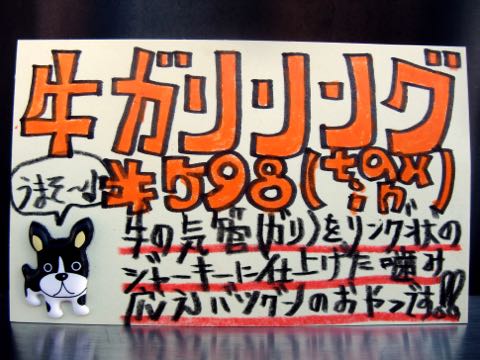 牛ガリリング
¥598(tax in)
うまそ〜♪
牛の気管(ガリ)をリング状の
ジャーキーに仕上げた噛み
応えバツグンのおやつです!!